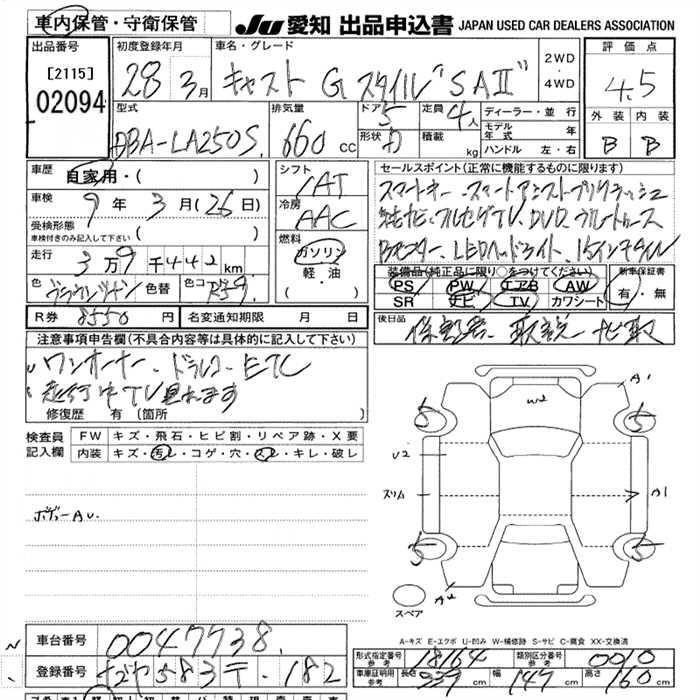 車内保管・守衛保管
JU 愛知 出品申込書 JAPAN USED CAR DEALERS ASSOCIATION
出品番号 初度登録年月 車名・グレード 評価点
[2115] 28 3月 キャスト G スタイル "SAII" 2WD ・ 4WD 4.5
02094
型式 排気量 ドア 5 定員 4人 ディーラー・並行 外装 内装
DBA-LA250S 660 cc 形状 積載 kg モデル年式 年 B B
ハンドル 左・右
車歴 自家用・( ) シフト セールスポイント(正常に機能するものに限ります)
車検 9年 3月(26日) IAT スマートキー・スマートアシスト
受検形態 冷房 純ナビ・フルセグTV、DVD、ブルートゥース
車検付きのみ記入して下さい ( ) AAC LEDヘッドライト、15インチアルミ
走行 3万9千442km 燃料 ガソリン・軽・油 装備品(純正品に限り○をつけてください) 新車保証書
色 色替 色コード R59 PS PW エアB AW 有・無
SR ナビ TV カワシート
R券 8550円 名変通知期限 月 日 後日品
注意事項申告欄(不具合内容等は具体的に記入して下さい) 保 取説 ナビ取
ワンオーナー、ドラレコ、ETC
走行中TV見れます
修復歴 有 〔箇所 〕
検査員記入欄 FW キズ・飛石・ヒビ割・リペア跡・X要
内装 キズ・汚レ・コゲ・穴・スレ・キレ・破レ
W2 A1
5 5
U2
スリム A1
ボデーAU.
5 5
AU
スペア
A-キズ E-エクボ U-凹み W-補修跡 S-サビ C-腐食 XX-交換済
車台番号 0047738 形式指定番号 参考 18164 類別区分番号 参考 0010
登録番号 583 182 車庫証明用参考 長さ 339cm 幅 147cm 高さ 160cm